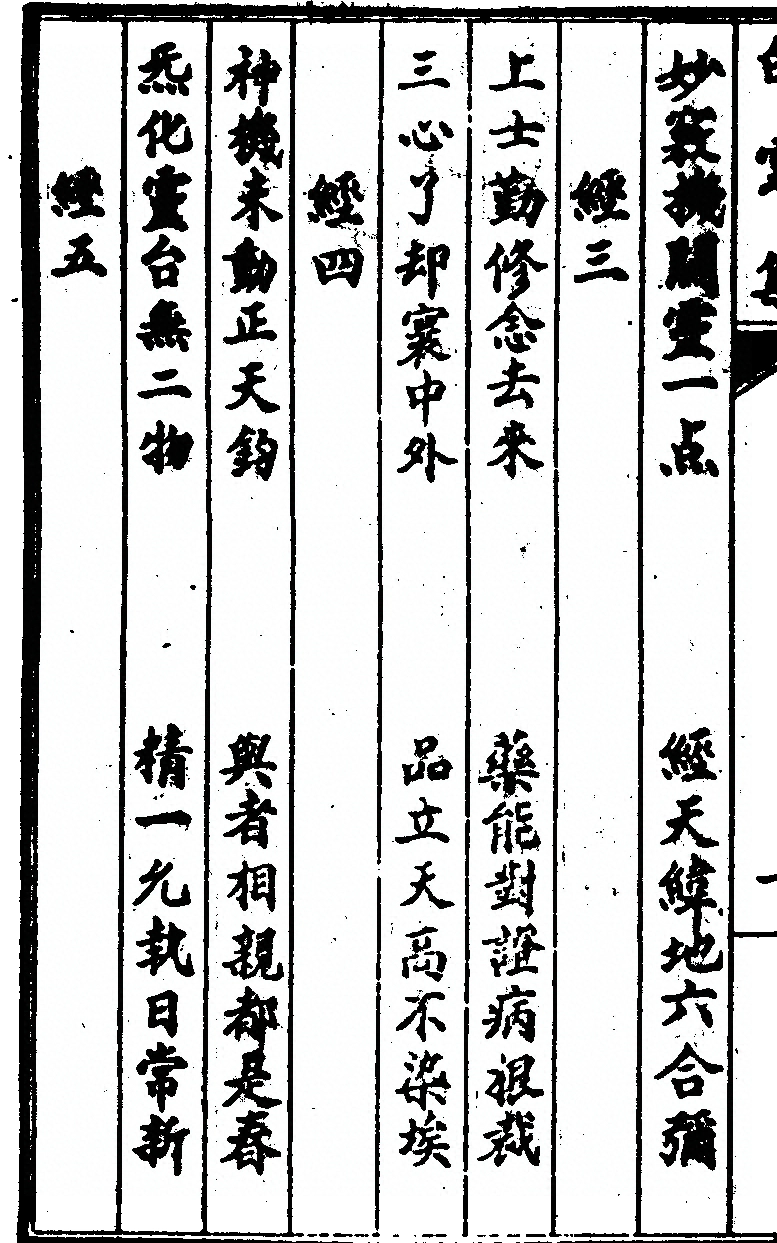 妙竅機關靈一点　經天緯地六合彌
經三
上士勤修念去來　藥能對證病根裁
三心了却寰中外　品立天高不染埃
經四
神機未動正天鈞　與者相親都是春
炁化靈台無二物　精一允執日常新
經五